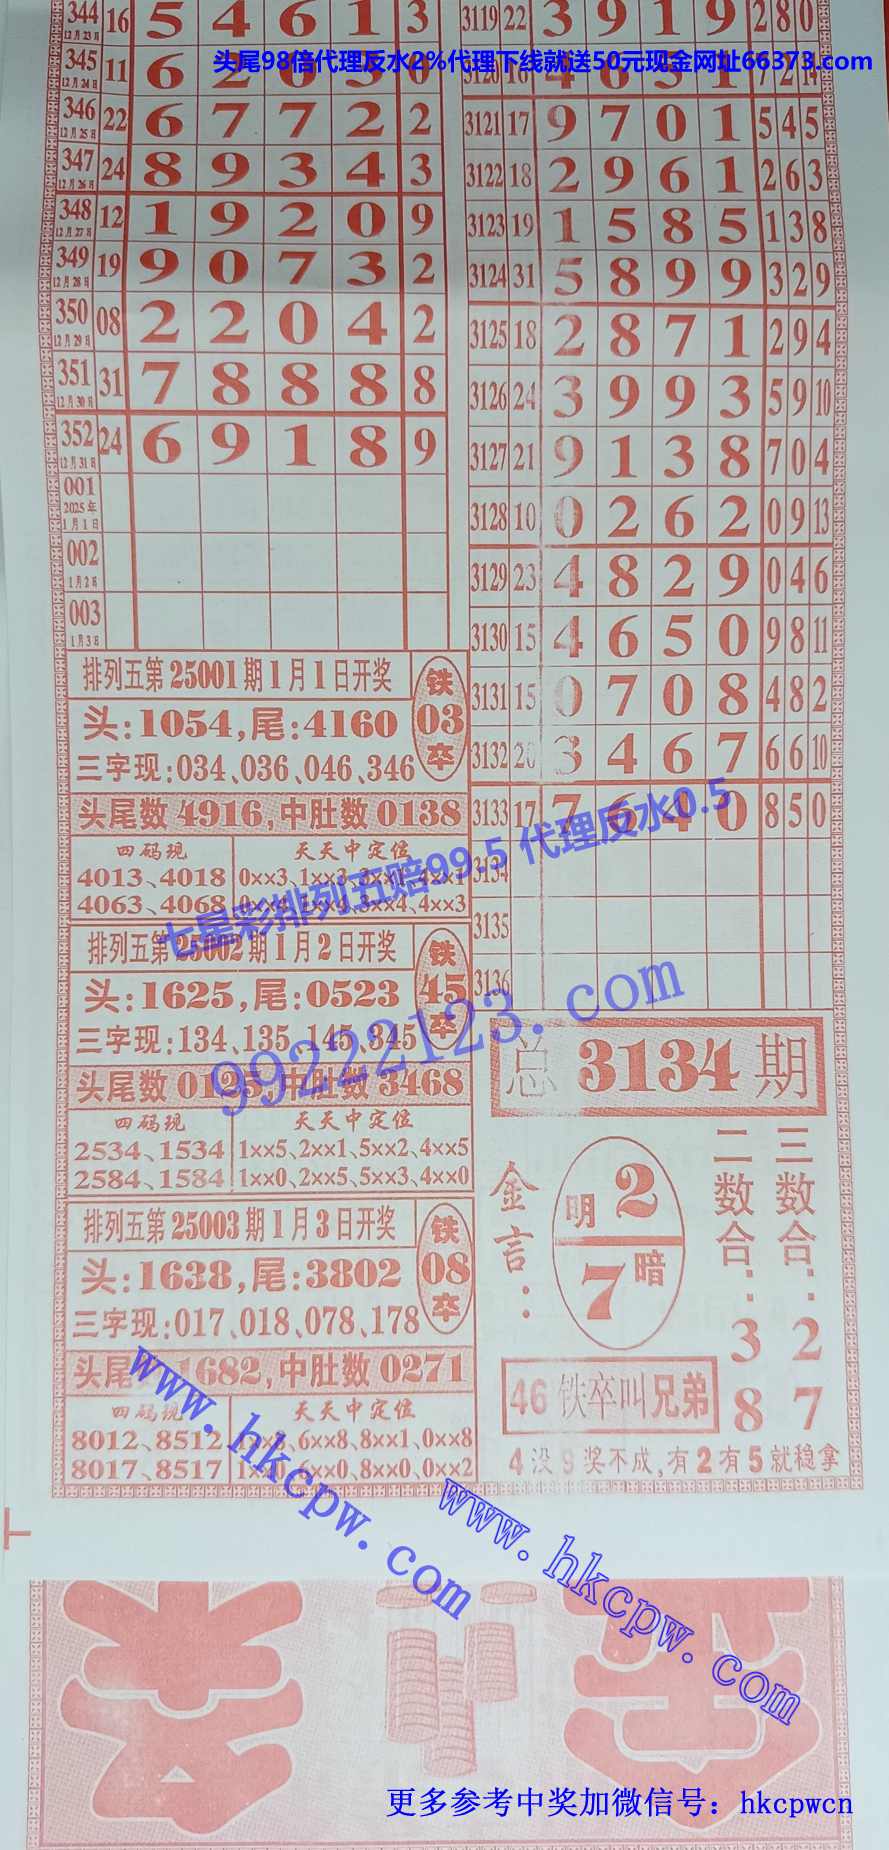 344 12月23日 16 5 4 6 1 3
345 12月24日 11 6 2 0 5 0
346 12月25日 22 6 7 7 2 2
347 12月26日 24 8 9 3 4 3
348 12月27日 12 1 9 2 0 9
349 12月28日 19 9 0 7 3 2
350 12月29日 08 2 2 0 4 2
351 12月30日 31 7 8 8 8 8
352 12月31日 24 6 9 1 8 9
001 2025年1月1日
002 1月2日
003 1月3日
3119 22 3 9 1 9 2 8 0
头尾98倍代理反水2%代理下线就送50元现金网址66373.com
3120 16 4 6 5 1 7 2 14
3121 17 9 7 0 1 5 4 5
3122 18 2 9 6 1 2 6 3
3123 19 1 5 8 5 1 3 8
3124 31 5 8 9 9 3 2 9
3125 18 2 8 7 1 2 9 4
3126 24 3 9 9 3 5 9 10
3127 21 9 1 3 8 7 0 4
3128 10 0 2 6 2 0 9 13
3129 23 4 8 2 9 0 4 6
3130 15 4 6 5 0 9 8 11
3131 15 0 7 0 8 4 8 2
3132 20 3 4 6 7 6 6 10
3133 17 7 6 4 0 8 5 0
3134
3135
3136
排列五第25001期1月1日开奖
头:1054,尾:4160
三字现:034、036、046、346
铁03卒
头尾数4916,中肚数0138
四码现 天天中定位
4013、4018 0××3、1××3、3××1、4××1
4063、4068 0××4、1××4、3××4、4××3
七星彩排列五赔99.5 代理反水0.5
排列五第25002期1月2日开奖
头:1625,尾:0523
三字现:134、135、145、345
铁45卒
99222123.com
头尾数0125,中肚数3468
四码现 天天中定位
2534、1534 1××5、2××1、5××2、4××5
2584、1584 1××0、2××5、5××3、4××0
排列五第25003期1月3日开奖
头:1638,尾:3802
三字现:017、018、078、178
铁08卒
头尾数1682,中肚数0271
四码现 天天中定位
8012、8512 6××8、8××1、0××8
8017、8517 1××0、6××0、8××0、0××2
总3134期
金言:
明2
7暗
二数合:38
三数合:27
46铁卒叫兄弟
4没9奖不成,有2有5就稳拿
www.hkcpw.com
www.hkcpw.com
更多参考中奖加微信号：hkcpwcn